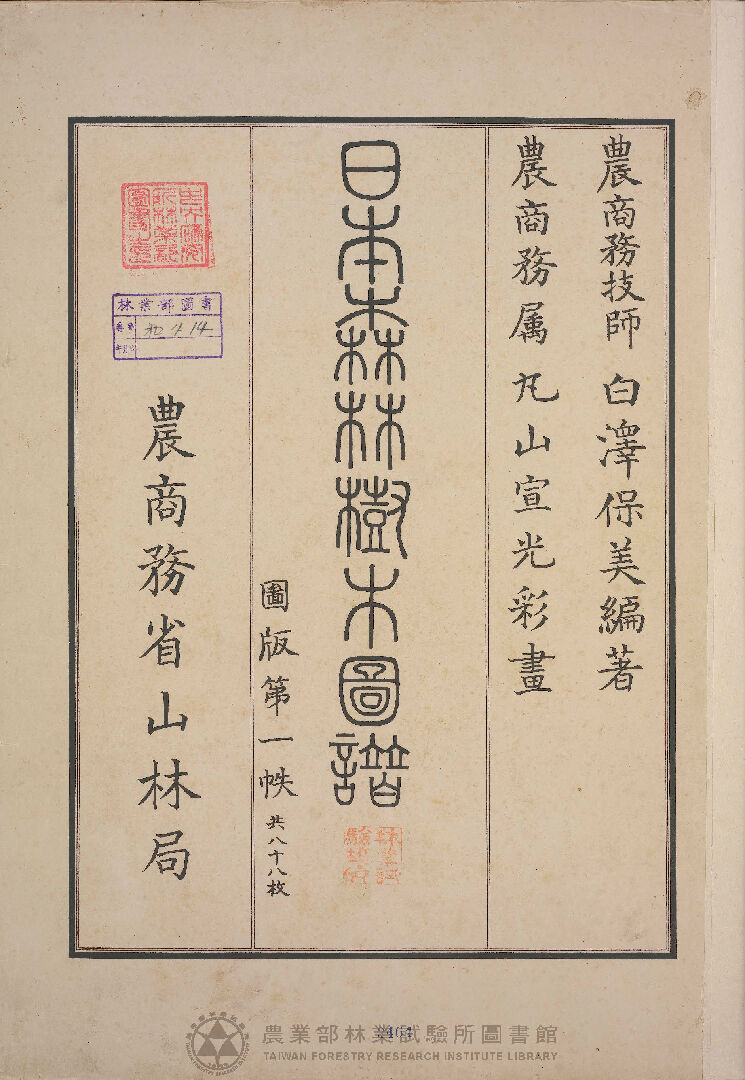 農商務技師 白澤保美編著
農商務属 丸山宣光彩畫
日本森林樹木圖譜
圖版第一帙 共八十八枚
農商務省山林局
林業部圖書
464
農業部林業試驗所圖書館
TAIWAN FORESTRY RESEARCH INSTITUTE LIBRARY